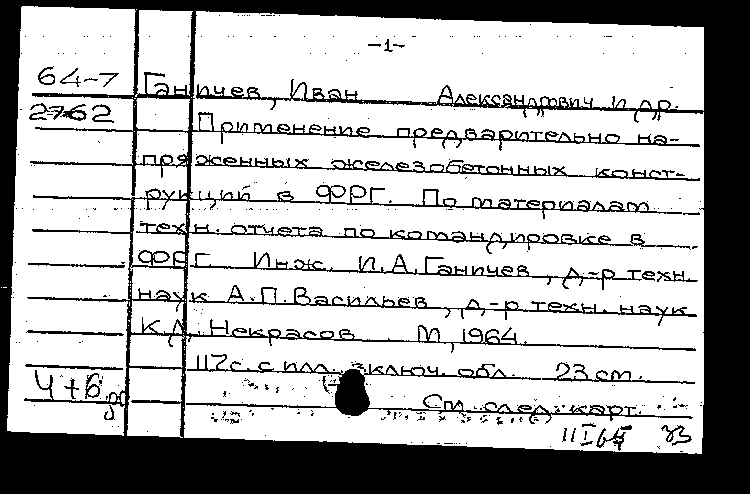 -1-
64-7 Ганичев, Иван Александрович и др.
2762 Применение предварительно на-
пряженных железобетонных конст-
рукций в ФРГ. По материалам
техн. отчета по командировке в
ФРГ Инж. И.А.Ганичев, д-р техн.
наук А.П.Васильев, д-р техн. наук
К.Д. Некрасов М, 1964.
117с. с илл. включ. обл. 23 см.
4+б См. след. карт.